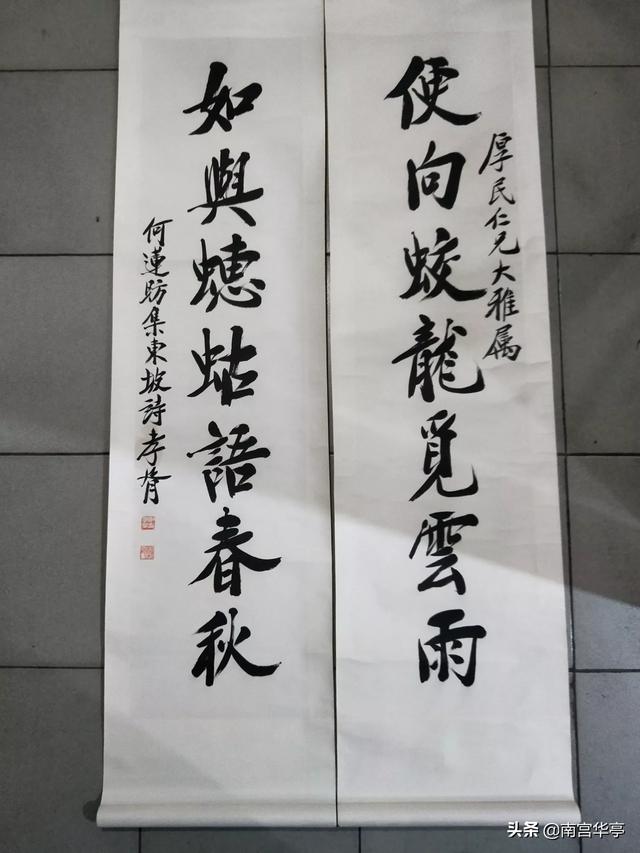 便向蛟龍覓雲雨
厚民仁兄大雅属
如與蟪蛄語春秋
何蓮舫集東坡詩孝胥
头条 @南宫华亭